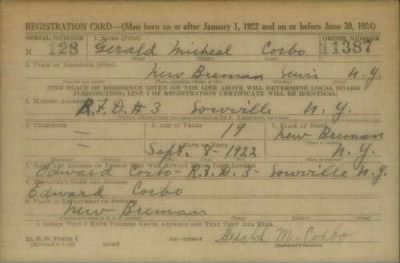 REGISTRATION CARD—(Men born on or after January 1, 1922 and on or before June 30, 1924)
SERIAL NUMBER 1. NAME (Print) ORDER NUMBER
N 128 Gerald Micheal Corbo 11387
2. PLACE OF RESIDENCE (Print)
New Breman Lewis N.Y.
(THE PLACE OF RESIDENCE GIVEN ON THE LINE ABOVE WILL DETERMINE LOCAL BOARD
JURISDICTION; LINE 2 OF REGISTRATION CERTIFICATE WILL BE IDENTICAL)
3. MAILING ADDRESS
R.F.D. # 3 Lowville N.Y.
4. TELEPHONE 5. AGE IN YEARS 6. PLACE OF BIRTH
— 19 New Breman
DATE OF BIRTH
— Sept. 8 - 1922 N.Y.
Edward Corbo - R.F.D. 3 - Lowville N.Y.
8. EMPLOYER'S NAME AND ADDRESS
Edward Corbo
9. PLACE OF EMPLOYMENT OR BUSINESS
New Breman
I AFFIRM THAT I HAVE VERIFIED ABOVE ANSWERS AND THAT THEY ARE TRUE.
D. S. S. Form 1
Gerald M. Corbo